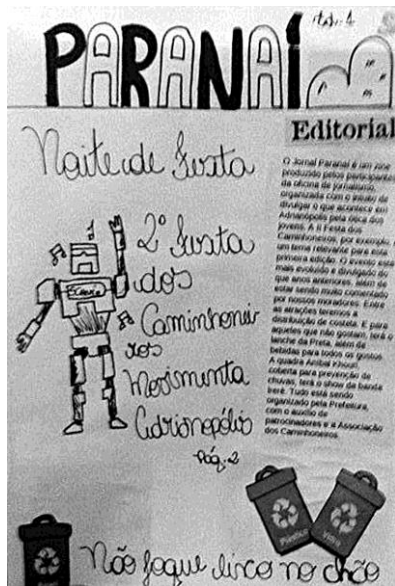 PARANAÍ
Noite de Festa
2º Festa
dos
Caminhonei
ros
Movimenta
Adrianópolis
Pág. 2
Scania
Editorial
O Jornal Paranaí é um zine
produzido pelos participantes
da oficina de jornalismo,
organizada com o intuito de
divulgar o que acontece em
Adrianópolis pela ótica dos
jovens. A II Festa dos
Caminhoneiros, por exemplo, é
um tema relevante para esta
primeira edição. O evento está
mais evoluído e divulgado do
que anos anteriores, além de
estar sendo muito comentado
por nossos moradores. Entre
as atrações teremos a
distribuição de costela. E para
aqueles que não gostam, terá o
lanche da Preta, além de
bebidas para todos os gostos.
A quadra Anibal Khouri,
coberta para prevenção de
chuvas, terá o show da banda
Ireré. Tudo está sendo
organizado pela Prefeitura,
com o auxílio de
patrocinadores e a Associação
dos Caminhoneiros.
Plástico
Vidro
Não jogue lixo no chão